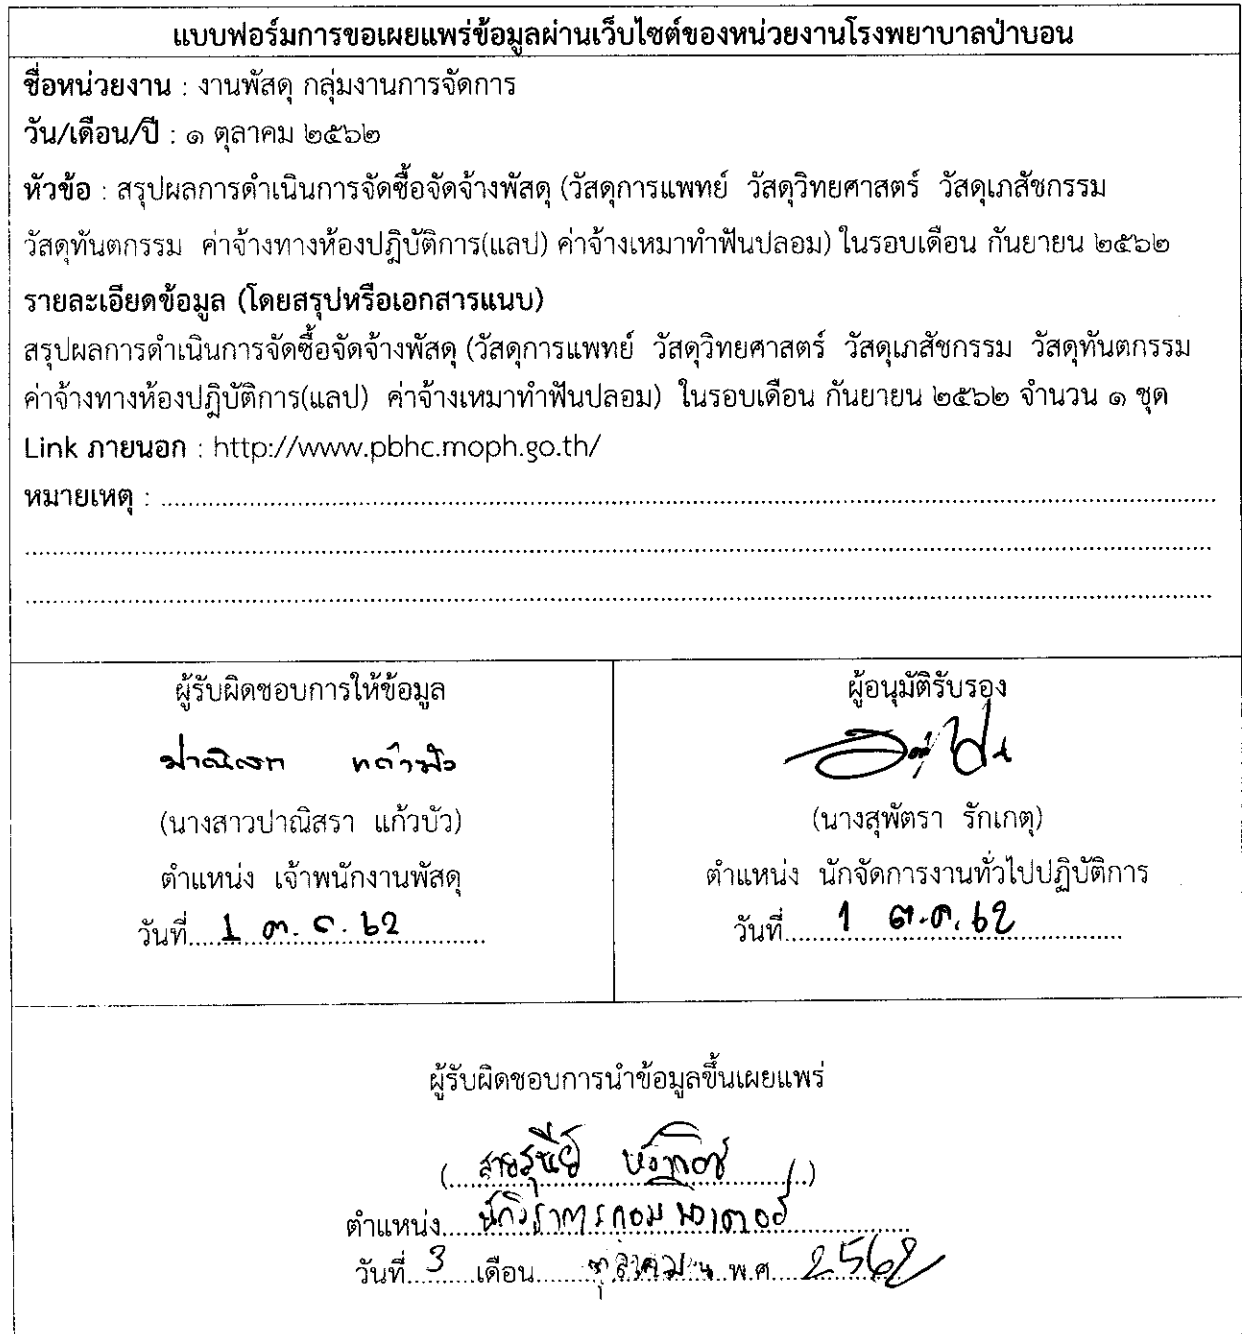 แบบฟอร์มการขอเผยแพร่ข้อมูลผ่านเว็บไซต์ของหน่วยงานโรงพยาบาลป่าบอน
ชื่อหน่วยงาน : งานพัสดุ กลุ่มงานการจัดการ
วัน/เดือน/ปี : ๑ ตุลาคม ๒๕๖๒
หัวข้อ : สรุปผลการดำเนินการจัดซื้อจัดจ้างพัสดุ (วัสดุการแพทย์ วัสดุวิทยศาสตร์ วัสดุเภสัชกรรม
วัสดุทันตกรรม ค่าจ้างทางห้องปฏิบัติการ(แลป) ค่าจ้างเหมาทำฟันปลอม) ในรอบเดือน กันยายน ๒๕๖๒
รายละเอียดข้อมูล (โดยสรุปหรือเอกสารแนบ)
สรุปผลการดำเนินการจัดซื้อจัดจ้างพัสดุ (วัสดุการแพทย์ วัสดุวิทยศาสตร์ วัสดุเภสัชกรรม วัสดุทันตกรรม
ค่าจ้างทางห้องปฏิบัติการ(แลป) ค่าจ้างเหมาทำฟันปลอม) ในรอบเดือน กันยายน ๒๕๖๒ จำนวน ๑ ชุด
Link ภายนอก : http://www.pbhc.moph.go.th/
หมายเหตุ :
ผู้รับผิดชอบการให้ข้อมูล
ปาณิสรา แก้วบัว
(นางสาวปาณิสรา แก้วบัว)
ตำแหน่ง เจ้าพนักงานพัสดุ
วันที่ 1 ต.ค. 62
ผู้อนุมัติรับรอง
(นางสุพัตรา รักเกตุ)
ตำแหน่ง นักจัดการงานทั่วไปปฏิบัติการ
วันที่ 1 ต.ค. 62
ผู้รับผิดชอบการนำข้อมูลขึ้นเผยแพร่
ตำแหน่ง นักวิชาการคอมพิวเตอร์
วันที่ 3 เดือน ตุลาคม พ.ศ. 2562